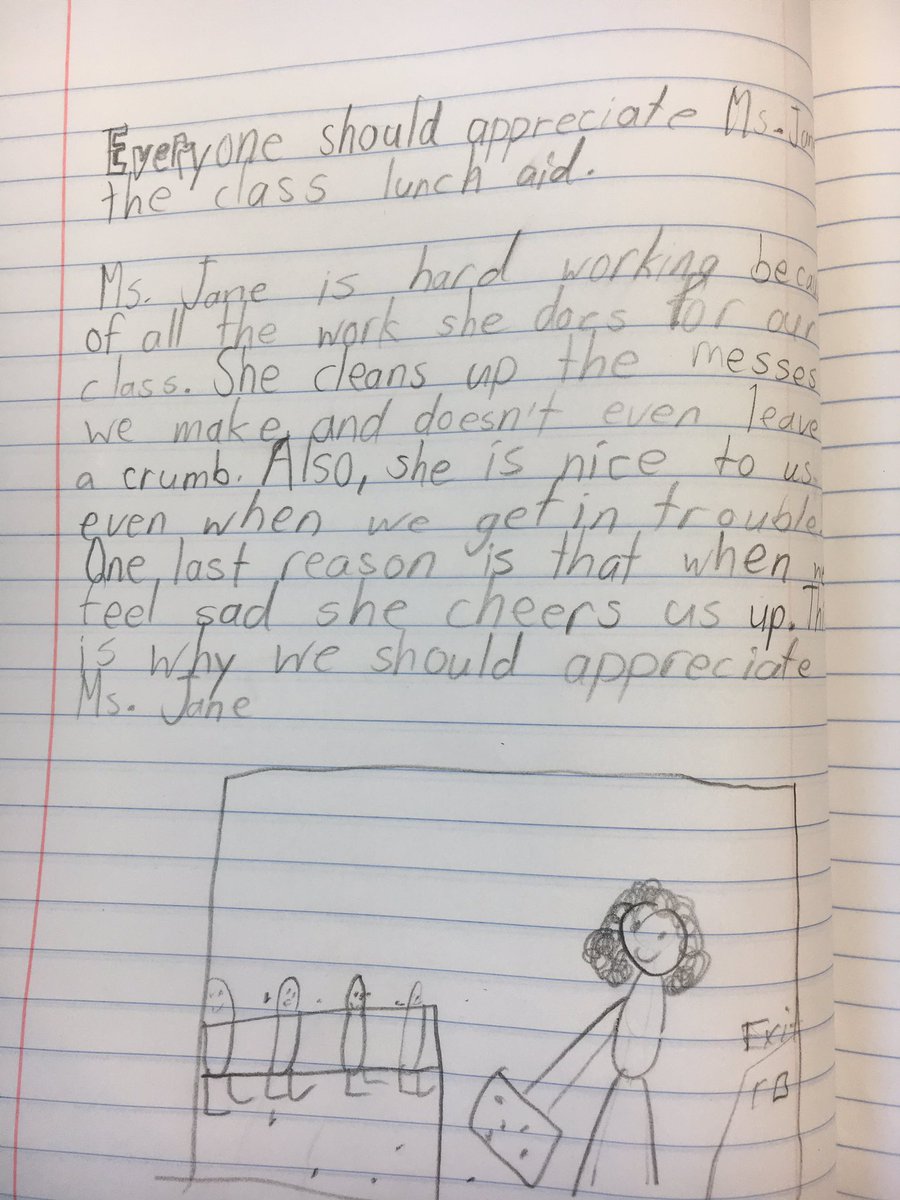 Everyone should appreciate Ms. Jan
the class lunch aid.
Ms. Jane is hard working beca
of all the work she does for our
class. She cleans up the messes
we make and doesn't even leave
a crumb. Also, she is nice to us
even when we get in trouble.
One last reason is that when
feel sad she cheers us up. Thi
is why we should appreciate
Ms. Jane
Exit